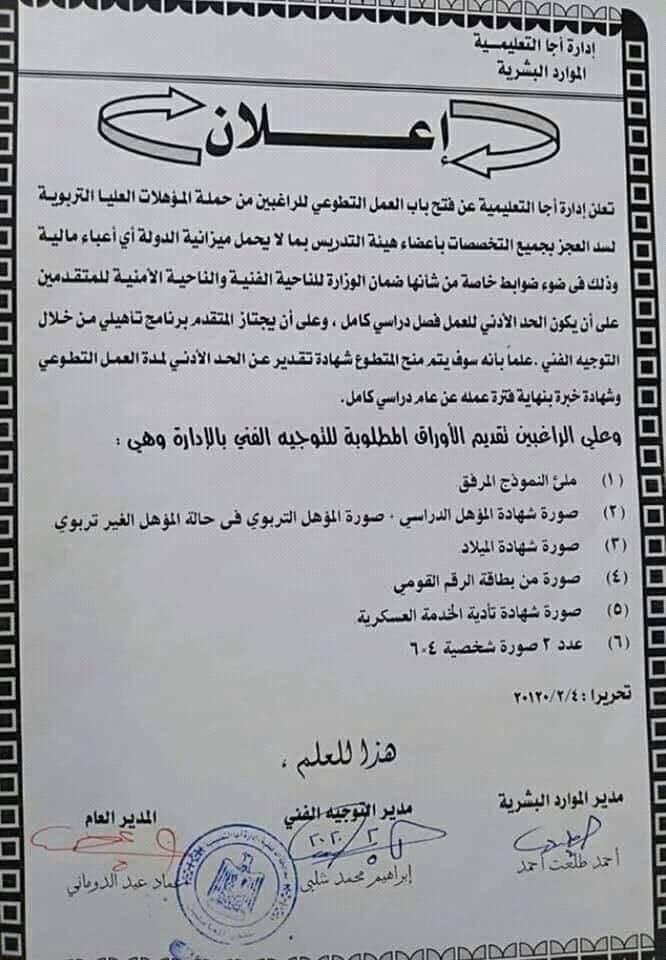 إدارة أجا التعليمية
الموارد البشرية
إعلان
تعلن إدارة أجا التعليمية عن فتح باب العمل التطوعي للراغبين من حملة المؤهلات العليا التربوية
لسد العجز بجميع التخصصات بأعضاء هيئة التدريس بما لا يحمل ميزانية الدولة أي أعباء مالية
وذلك فى ضوء ضوابط خاصة من شأنها ضمان الوزارة للناحية الفنية والناحية الأمنية للمتقدمين
على أن يكون الحد الأدني للعمل فصل دراسي كامل ، وعلى أن يجتاز المتقدم برنامج تأهيلي من خلال
التوجيه الفني .علماً بانه سوف يتم منح المتطوع شهادة تقدير عن الحد الأدني لمدة العمل التطوعي
وشهادة خبرة بنهاية فترة عمله عن عام دراسي كامل.
وعلي الراغبين تقديم الأوراق المطلوبة للتوجيه الفني بالإدارة وهي :
(١) ملئ النموذج المرفق
(٢) صورة شهادة المؤهل الدراسي + صورة المؤهل التربوي فى حالة المؤهل الغير تربوي
(٣) صورة شهادة الميلاد
(٤) صورة من بطاقة الرقم القومي
(٥) صورة شهادة تأدية الخدمة العسكرية
(٦) عدد ٢ صورة شخصية ٤×٦
تحريرا : ٢٠١٢٠/٢/٤
هذا للعلم ،
مدير الموارد البشرية مدير التوجيه الفني المدير العام
أحمد طلعت أحمد إبراهيم محمد شلبي عماد عبد الدوماني